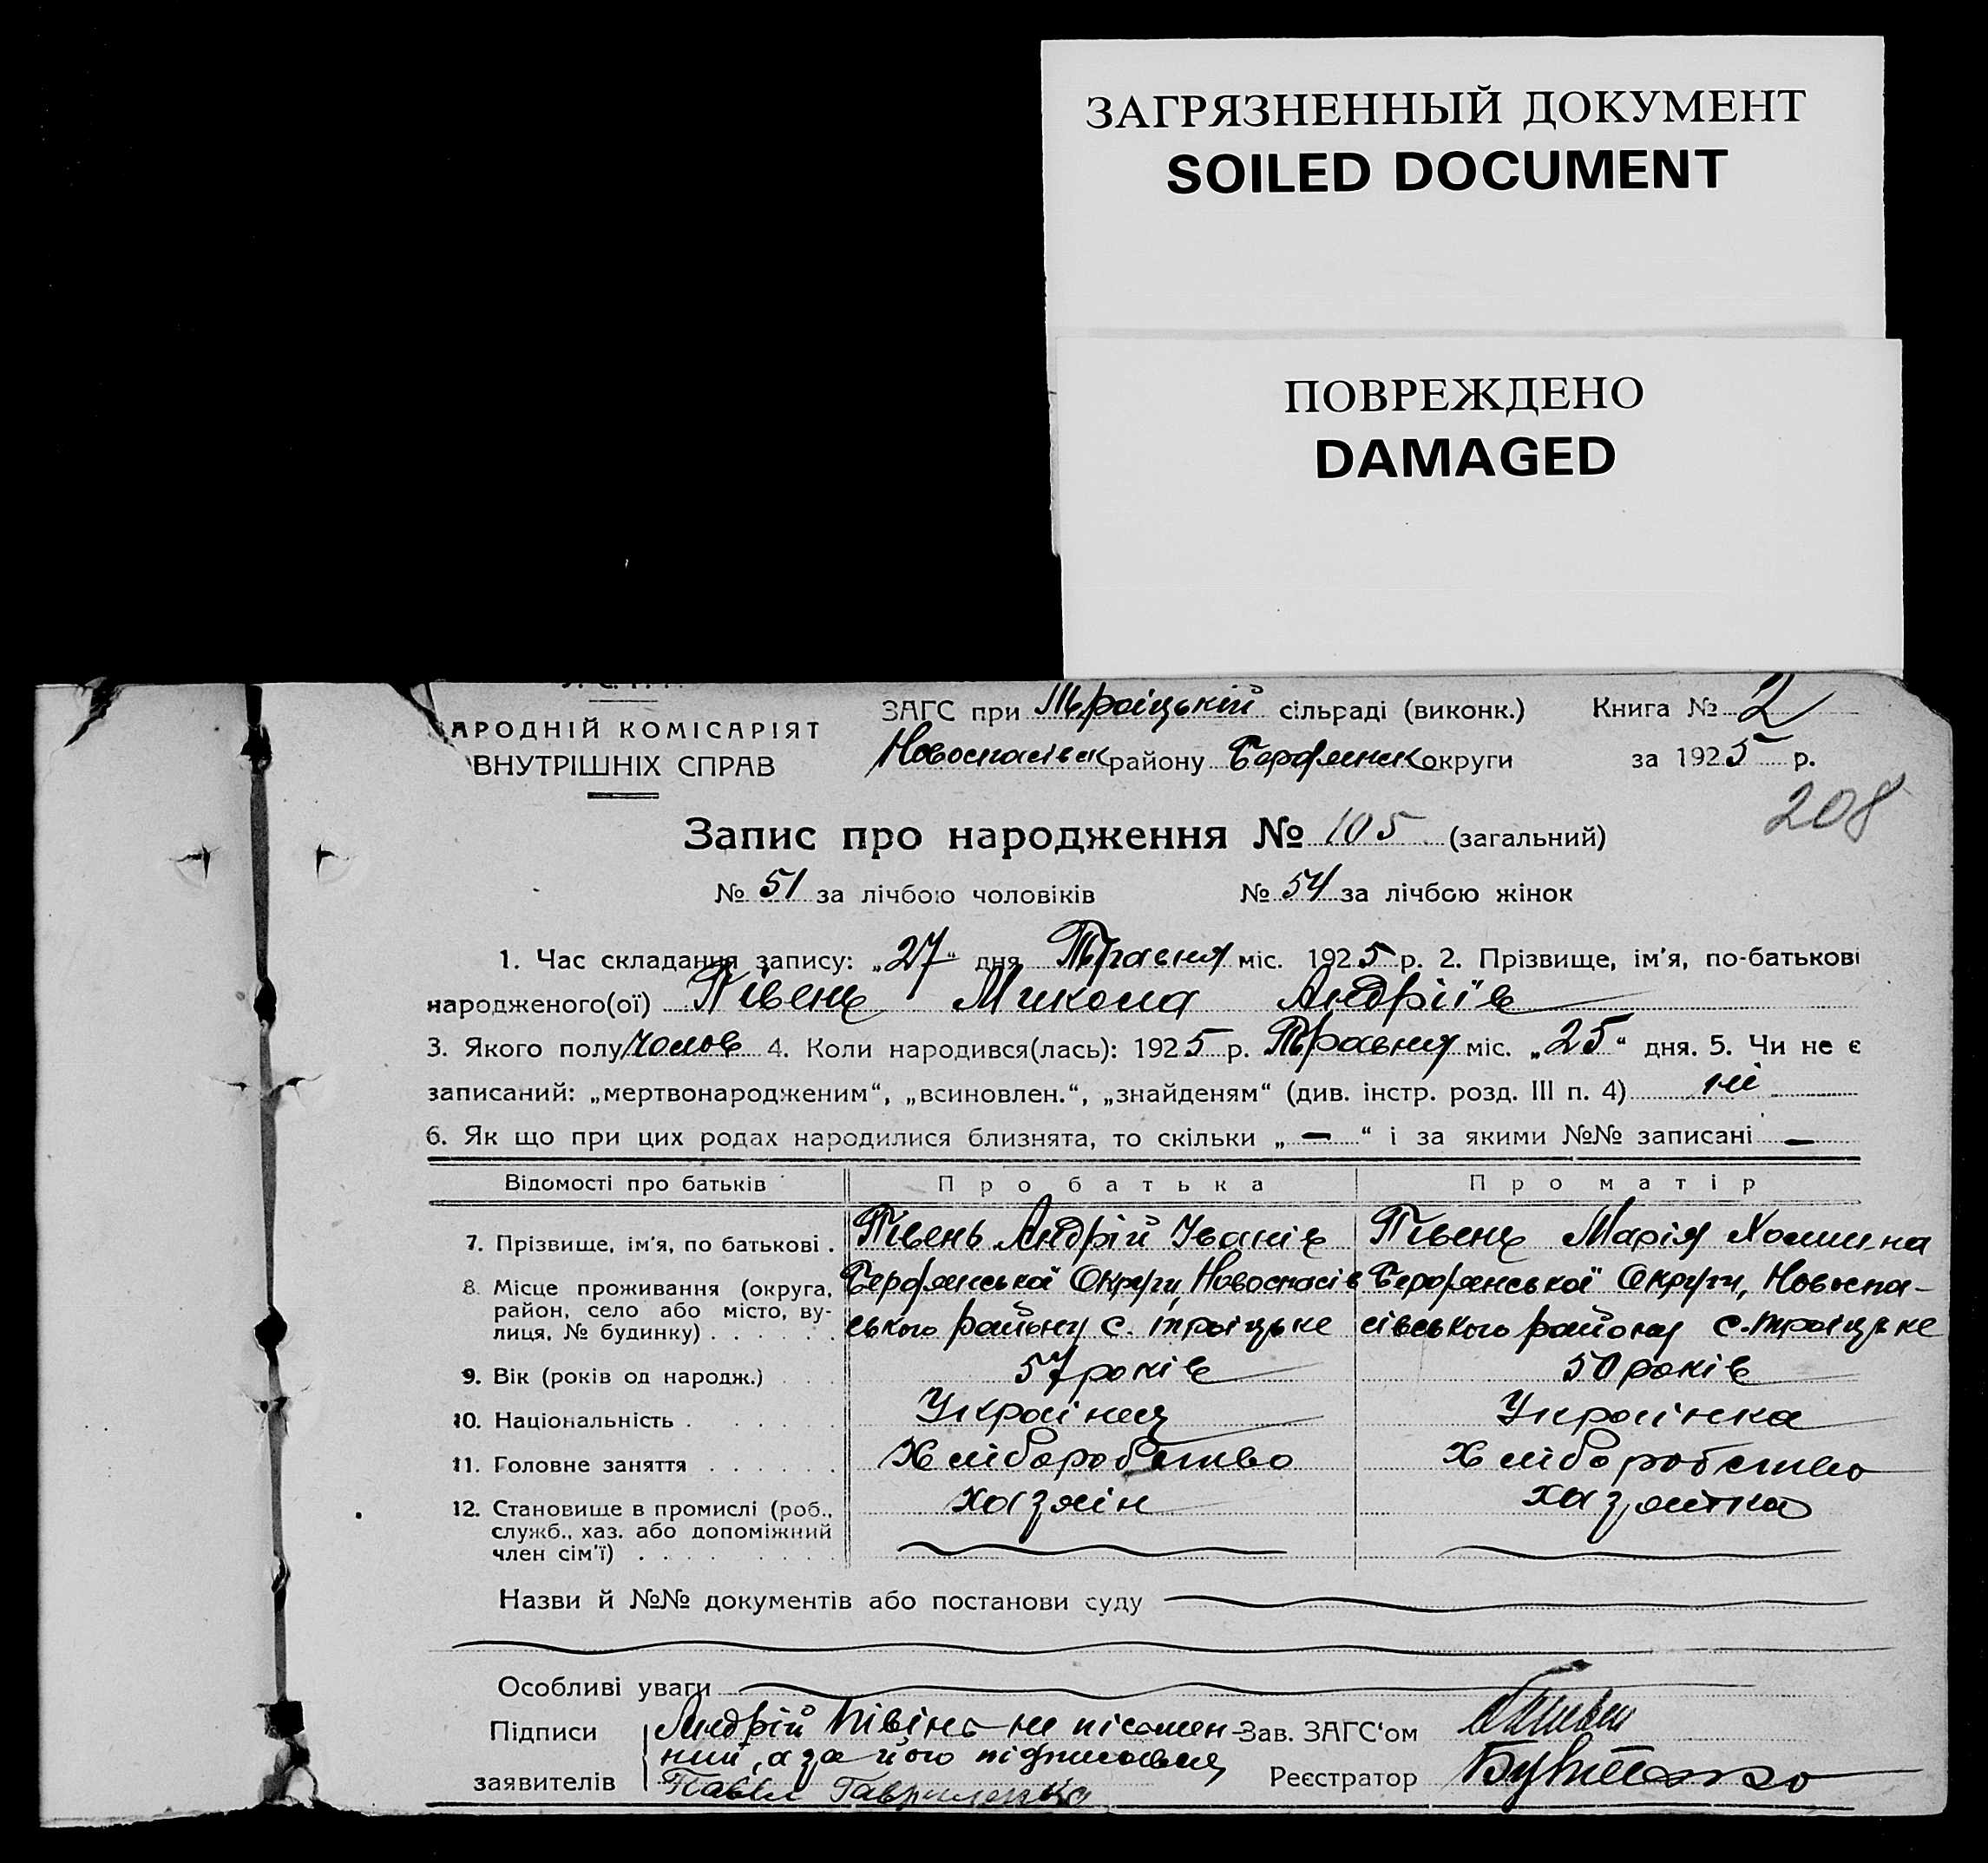 ЗАГРЯЗНЕННЫЙ ДОКУМЕНТ
SOILED DOCUMENT
ПОВРЕЖДЕНО
DAMAGED
АРОДНІЙ КОМІСАРІЯТ
ВНУТРІШНІХ СПРАВ
ЗАГС при Троіцькій сільраді (виконк.) Книга № 2
Новоспасівськ району Бердянськ округи за 1925 р.
208
Запис про народження № 105 (загальний)
№ 51 за лічбою чоловіків № 54 за лічбою жінок
1. Час складання запису: „27“ дня Травня міс. 1925 р. 2. Прізвище, ім'я, по-батькові
народженого(ої) Півень Микола Андріїв
3. Якого полу чолов 4. Коли народився(лась): 1925 р. Травня міс. „25“ дня. 5. Чи не є
записаний: „мертвонародженим“, „всиновлен.“, „знайденям“ (див. інстр. розд. III п. 4) ні
6. Як що при цих родах народилися близнята, то скільки „ — “ і за якими №№ записані —
Відомості про батьків Про батька Про матір
7. Прізвище, ім'я, по батькові . Півень Андрій Іванів Півень Марія Хомишна
8. Місце проживання (округа, район, село або місто, вулиця, № будинку) . . . . . .
Бердянської Округи, Новоспасів
ського району с. троіцьке
Бердянської Округи, Новоспа-
сівського району с. троіцьке
9. Вік (років од народж.) . . . 57 років 50 років
10. Національність . . . . . Украінец Украінка
11. Головне заняття . . . . . . Хліборобство Хліборобство
12. Становище в промислі (роб., служб., хаз. або допоміжний член сім'ї) . . . . . . . . .
хазяін хазяйка
Назви й №№ документів або постанови суду
Особливі уваги
Підписи заявителів
Андрій Півінь не пісьмен-
ний, а за його підписався
Павел Гавриленко
Зав. ЗАГС'ом
Реєстратор